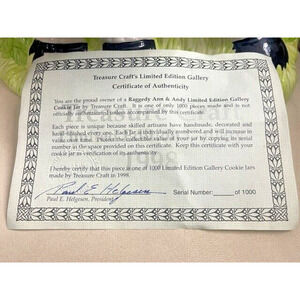 Treasure Craft's Limited Edition Gallery
Certificate of Authenticity
You are the proud owner of a Raggedy Ann & Andy Limited Edition Gallery
Cookie Jar by Treasure Craft. It is one of only 1000 pieces made and is not
officially authenticated unless accompanied by this certificate.
Each piece is unique because skilled artisans have handmade, decorated and
hand-striped every one. Each Jar is individually numbered and will increase in
value over time. Protect the collectible value of your jar by copying its serial
number in the space provided on this certificate. Keep this certificate with your
cookie jar as verification of its authenticity.
I hereby certify that this piece is one of 1000 Limited Edition Gallery Cookie Jars
made by Treasure Craft in 1998.
Paul E. Helgesen
Serial Number: of 1000
Paul E. Helgesen, President